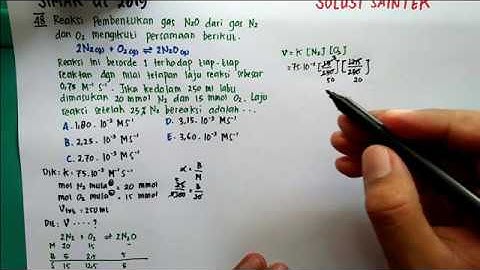 SIMAK UI 2019
SOLUSI SAINTEK
48 Reaksi Pembentukan gas N₂O dari gas N₂
dan O₂ mengikuti persamaan berikut.
2N₂(g) + O₂(g) ⇌ 2N₂O(g)
Reaksi ini berorde 1 terhadap tiap-tiap
reaktan dgn nilai tetapan laju reaksi sebesar
0,75 M⁻¹ S⁻¹. Jika kedalam 250 ml labu
dimasukan 20 mmol N₂ dan 15 mmol O₂. Laju
reaksi setelah 25% N₂ bereaksi adalah ...
A. 1,80 . 10⁻³ M S⁻¹
D. 3,15 . 10⁻³ M S⁻¹
B. 2,25 . 10⁻³ M S⁻¹
E. 3,60 . 10⁻³ M S⁻¹
C. 2,70 . 10⁻³ M S⁻¹
Dik : K = 75.10⁻² M⁻¹ S⁻¹
mol N₂ mula² = 20 mmol
mol O₂ mula² = 15 mmol
V = 250 ml
α = B/M
Dit : V ....?
2N₂ + O₂ ⇌ 2N₂O
M 20 15 -
B 5 2,5 5
S 15 12,5 5
V = K [N₂] [O₂]
= 75.10⁻²
50 20